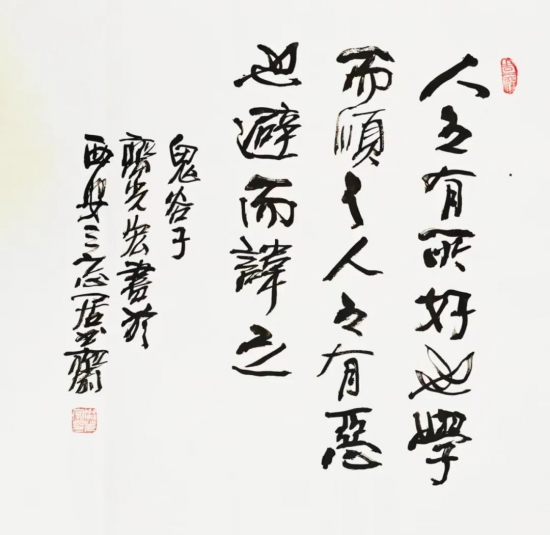 人之有所好也學
而順之人之有惡
也避而諱之
鬼谷子
光宏書於
西安三忘居齋